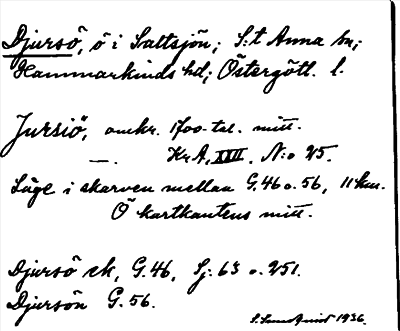 Djursö, ö i Saltsjön; S:t Anna sn;
Hammarkinds hd; Östergötl. l.
Jursiö, omkr. 1700-tal. mitt.
—. Kr.A. XVII, N:o 25.
Läge i skarven mellan G.46 o. 56, 11 km.
Ö kartkantens mitt.
Djursö ek, G.46, Sj: 63 o. 251.
Djursön G.56.
S. Sundquist 1936.